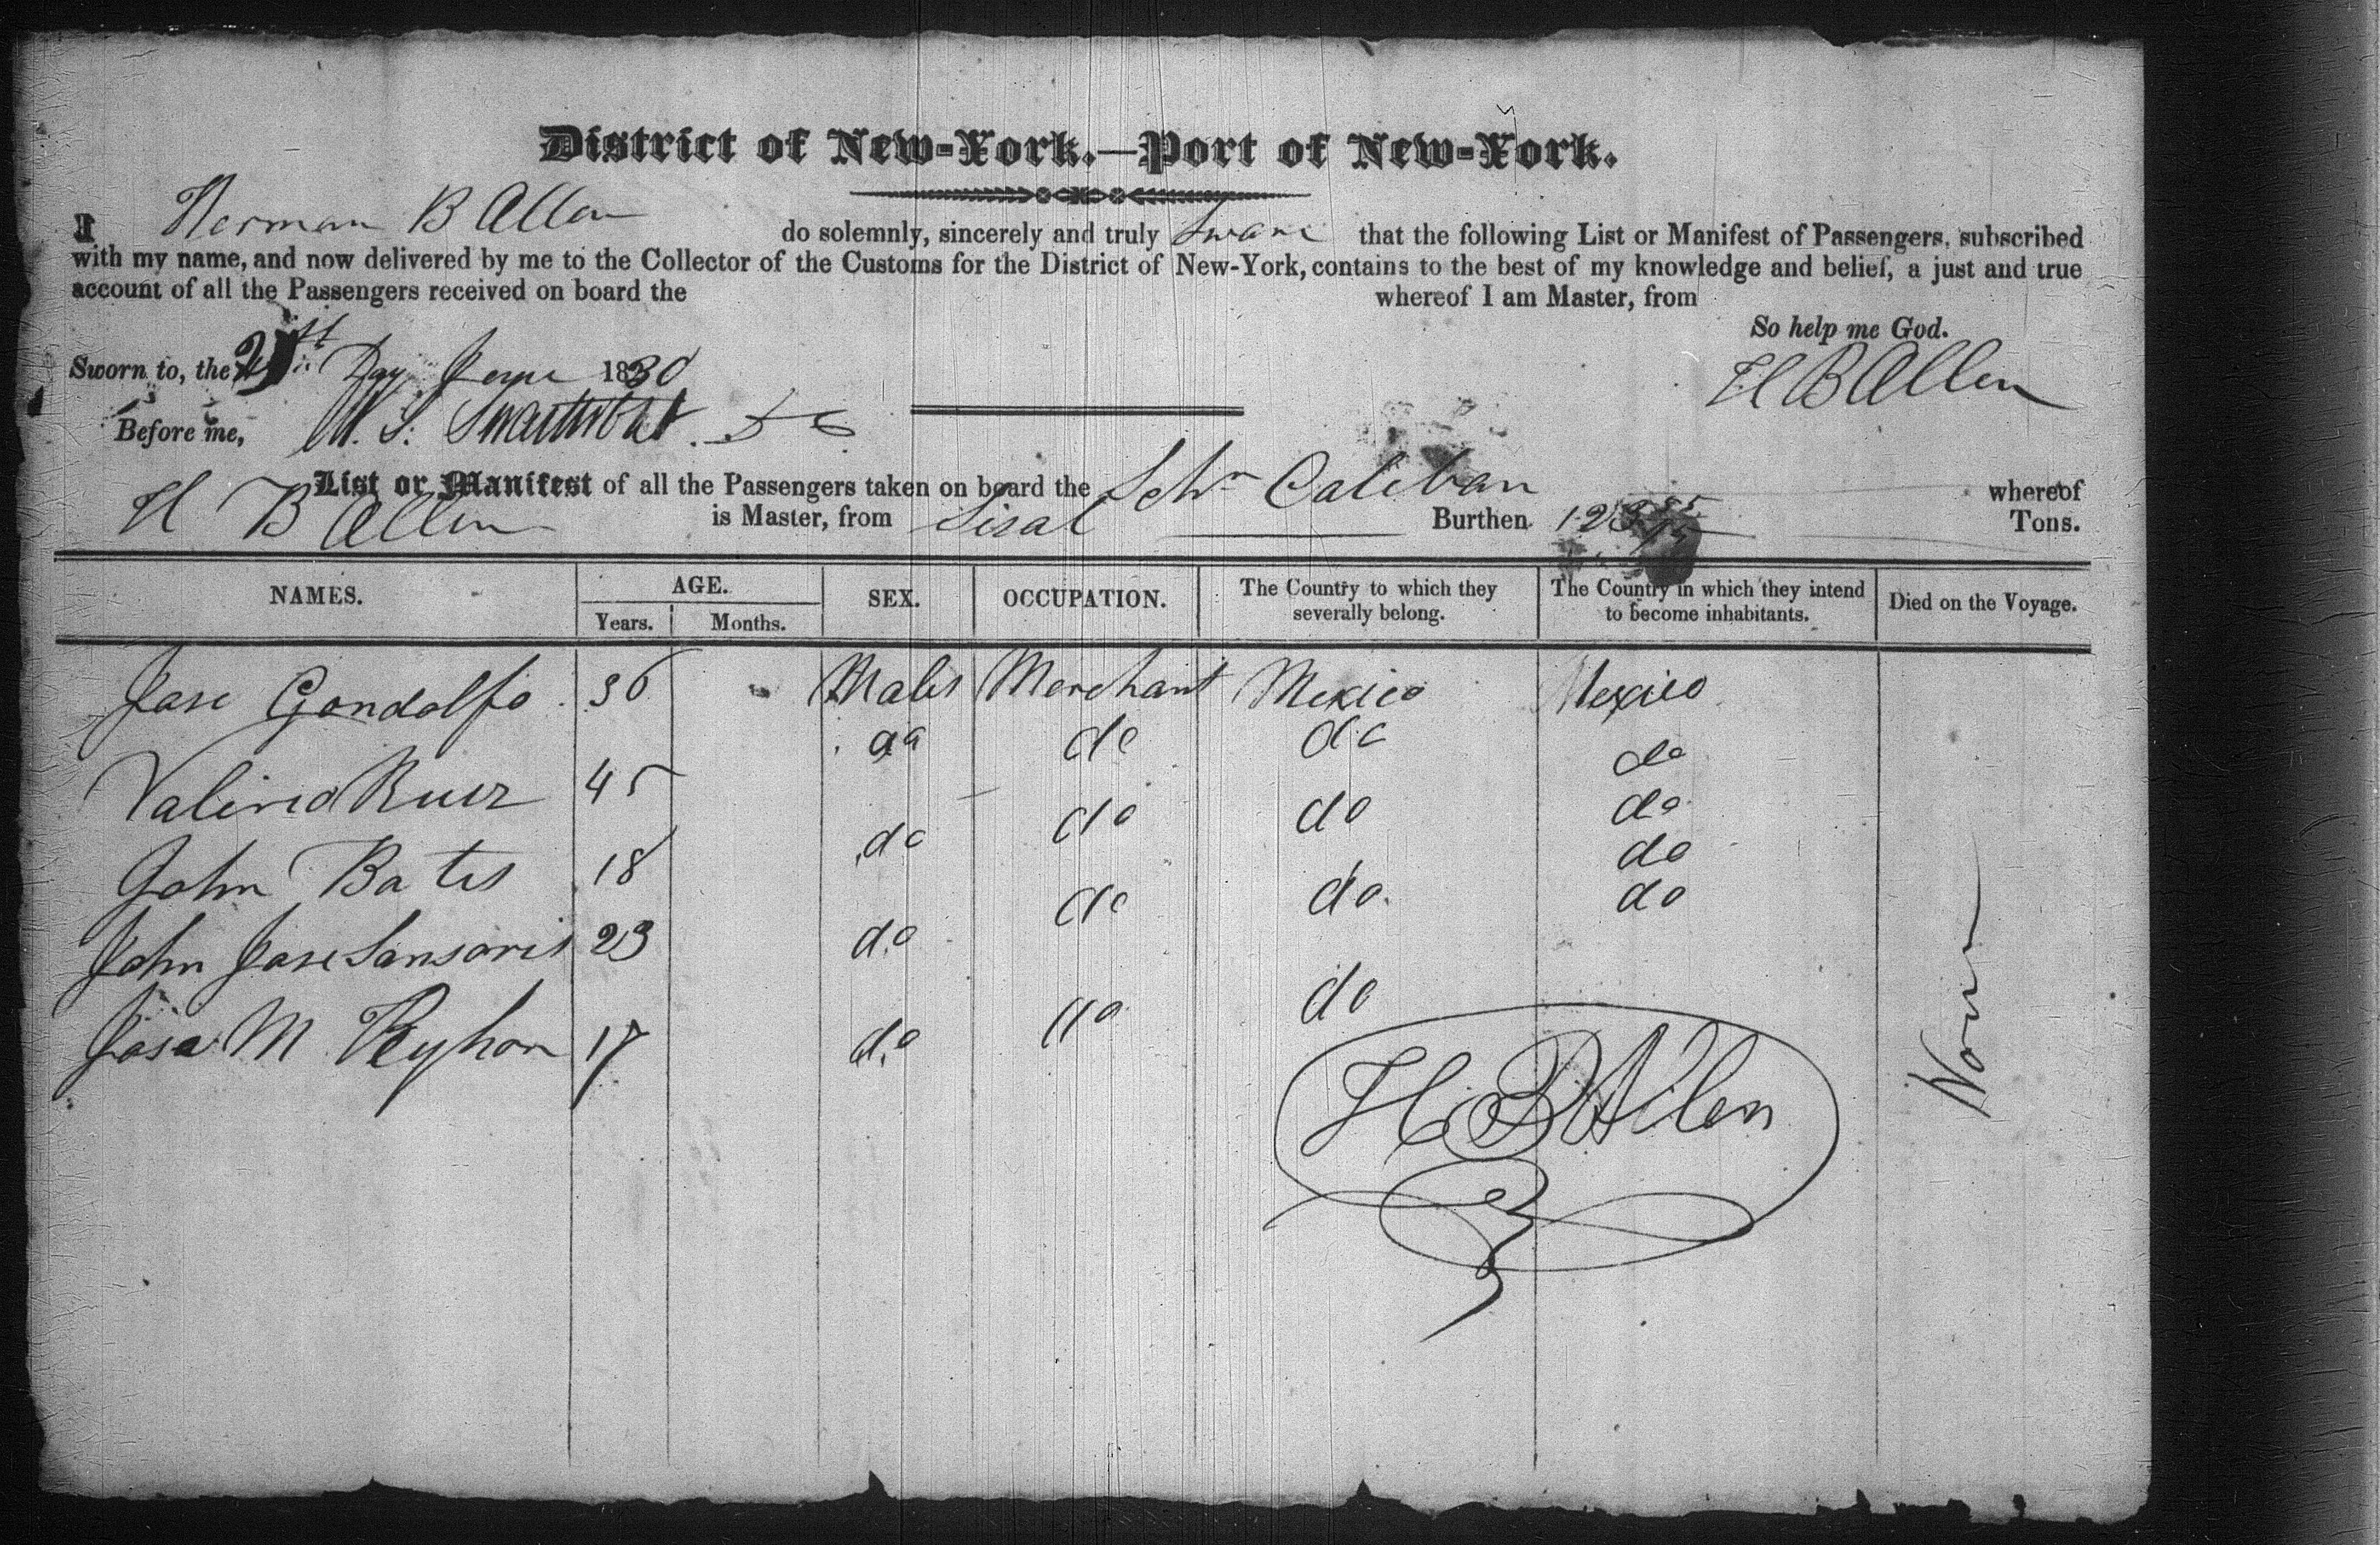 District of New-York.—Port of New-York.
I Herman B Allen do solemnly, sincerely and truly Sware that the following List or Manifest of Passengers, subscribed
with my name, and now delivered by me to the Collector of the Customs for the District of New-York, contains to the best of my knowledge and belief, a just and true
account of all the Passengers received on board the whereof I am Master, from
So help me God.
Sworn to, the 21st Day June 1830
H B Allen
Before me,
List or Manifest of all the Passengers taken on board the Schr Caleban whereof
H B Allen is Master, from Sisal Burthen Tons.
NAMES. AGE. SEX. OCCUPATION. The Country to which they severally belong. The Country in which they intend to become inhabitants. Died on the Voyage.
Years. Months.
Jose Gondolfo 36 Males Merchant Mexico Mexico
Valirio Ruiz 45 do do do do
John Bates 18 do do do do
John Jose 23 do do do do
Jose M 17 do do do do
None
H B Allen